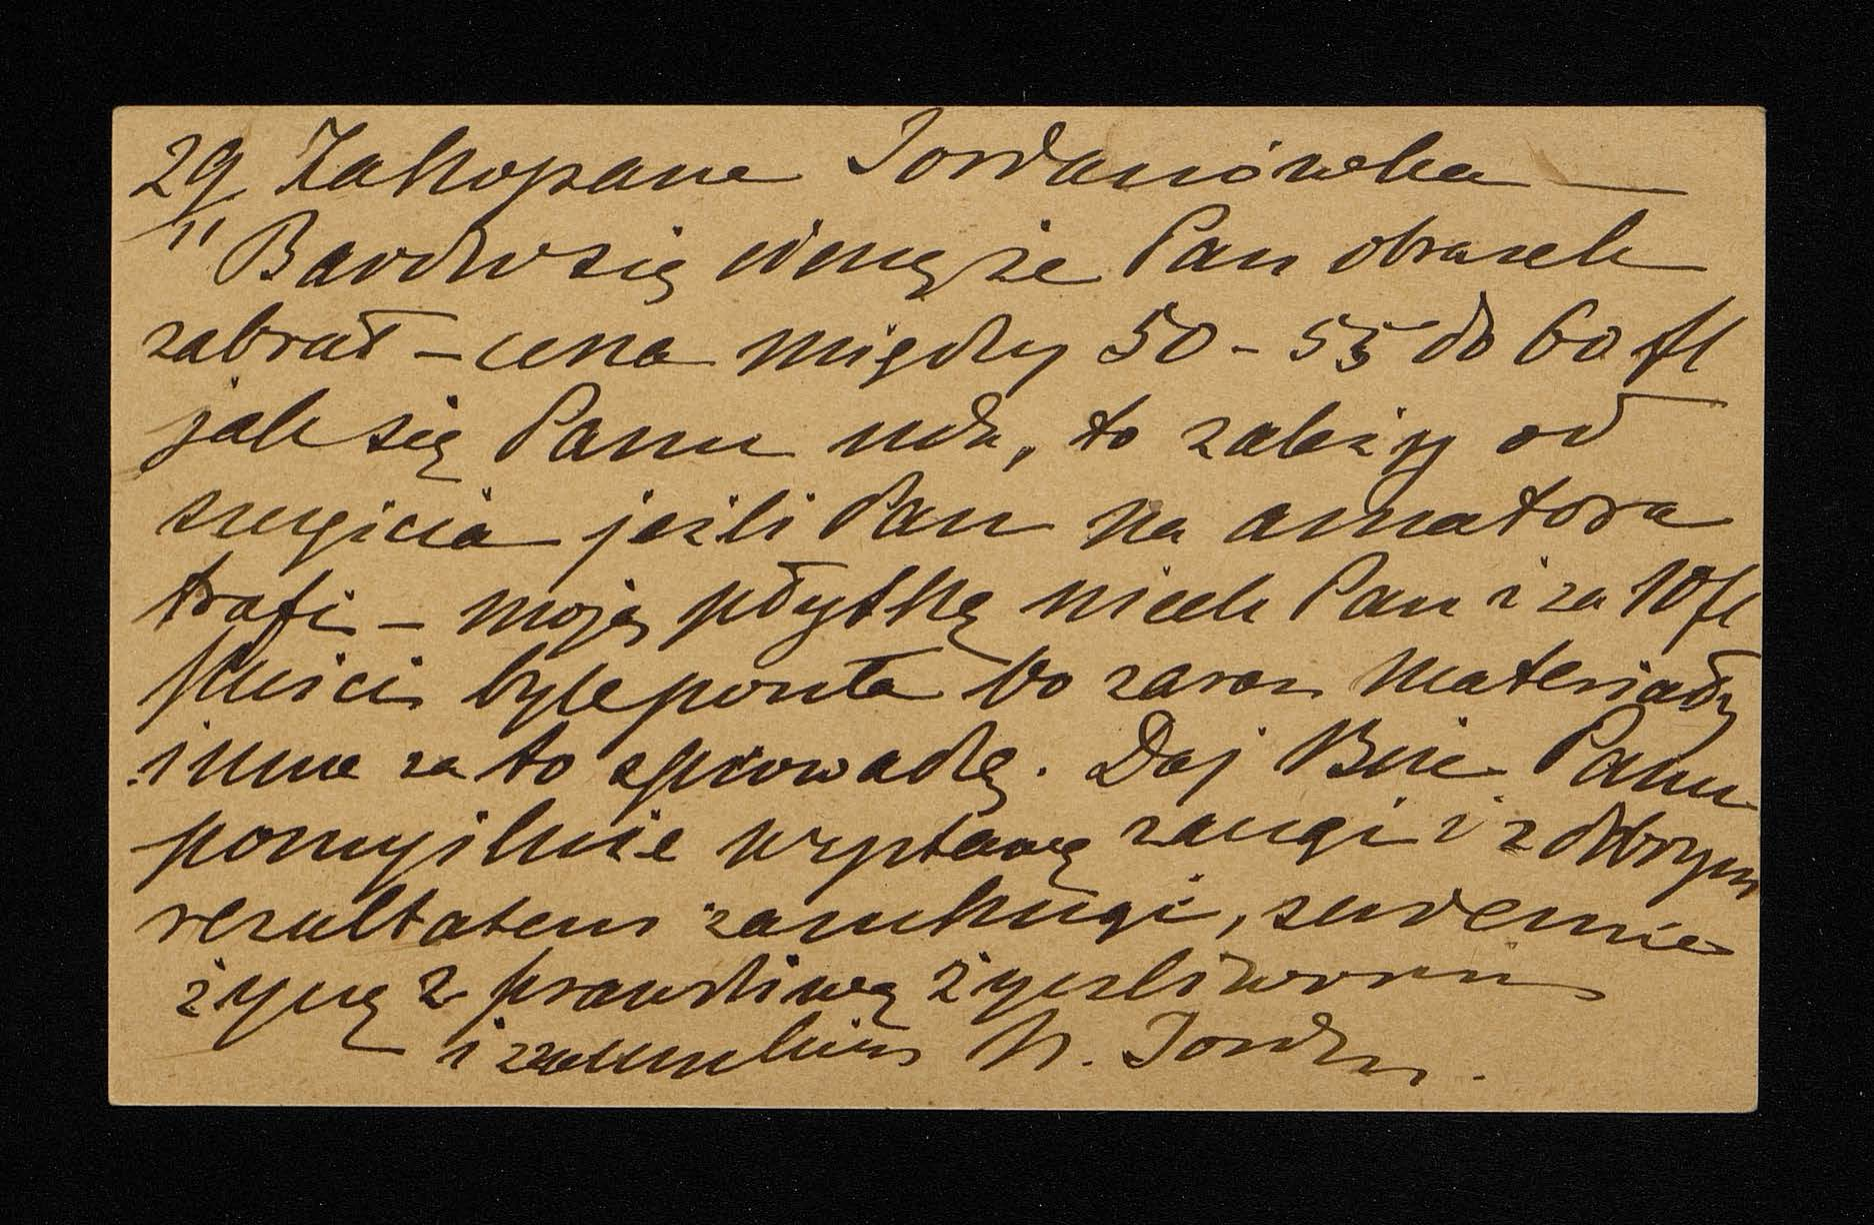 29/11 Zakopane Jordanówka —
Bardzo się cieszę że Pan obrazek
zabrał – cena między 50 – 55 do 60 fl
jak się Panu uda, to zależy od
szczęścia jeżli Pan na amatora
trafi – moją płytkę niech Pan i za 10 fl
puści byle poszła bo zaraz materiały
inne za to sprowadzę. Daj Boże Panu
pomyślnie wystawę zacząć i z dobrym
rezultatem zamknąć, serdecznie
życzę z prawdziwą życzliwością
i szacunkiem N. Jordan.